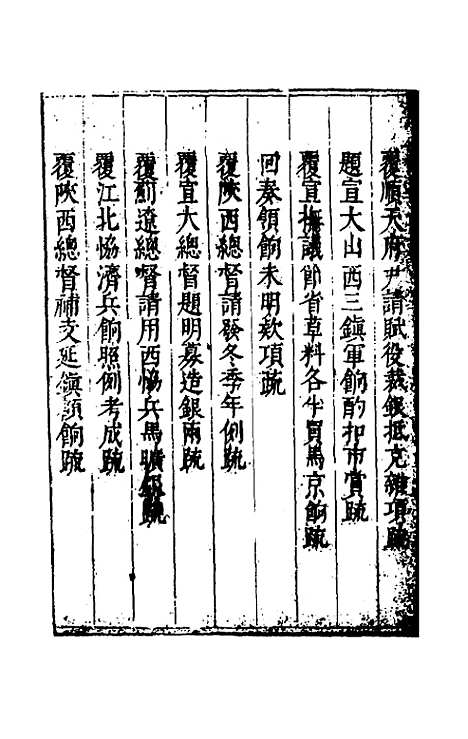 覆順天府尹請賦役裁銀抵克雜項疏
題宣大山西三鎮軍餉酌扣市賞疏
覆宣撫議節省草料各牛買馬京餉疏
回奏領餉未明欵項疏
覆陝西總督請發冬季年例疏
覆宣大總督題明募造銀兩疏
覆薊遼總督請用西恊兵馬曠銀疏
覆江北恊濟兵餉照例考成疏
覆陝西總督補支延鎮額餉疏